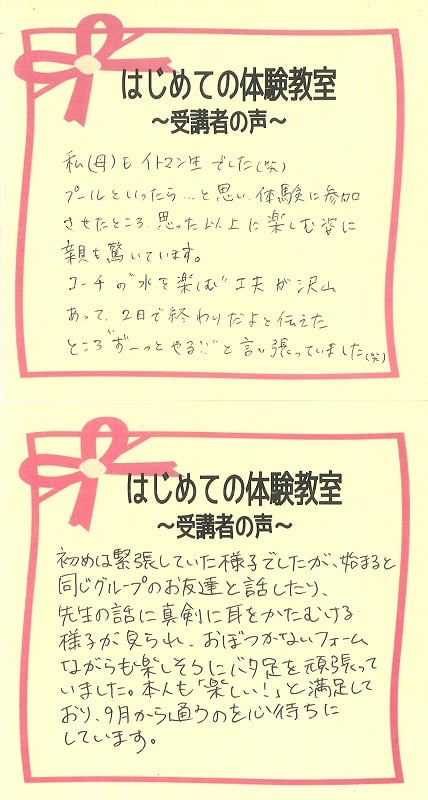 はじめての体験教室
～受講者の声～
私(母)も イトマン生 でした(笑)
プールといったら…と思い、体験に参加
させたところ、思った以上に楽しむ姿に
親も驚いています。
コーチの"水を楽しむ"工夫が沢山
あって、2日で終わりだよと伝えた
ところ"ずーっとやる!!"と言い張っていました(笑)
はじめての体験教室
～受講者の声～
初めは緊張していた様子でしたが、始まると
同じグループのお友達と話したり、
先生の話に真剣に耳をかたむける
様子が見られ、おぼつかないフォーム
ながらも楽しそうにバタ足を頑張って
いました。本人も「楽しい!」と満足して
おり、9月から通うのを心待ちに
しています。